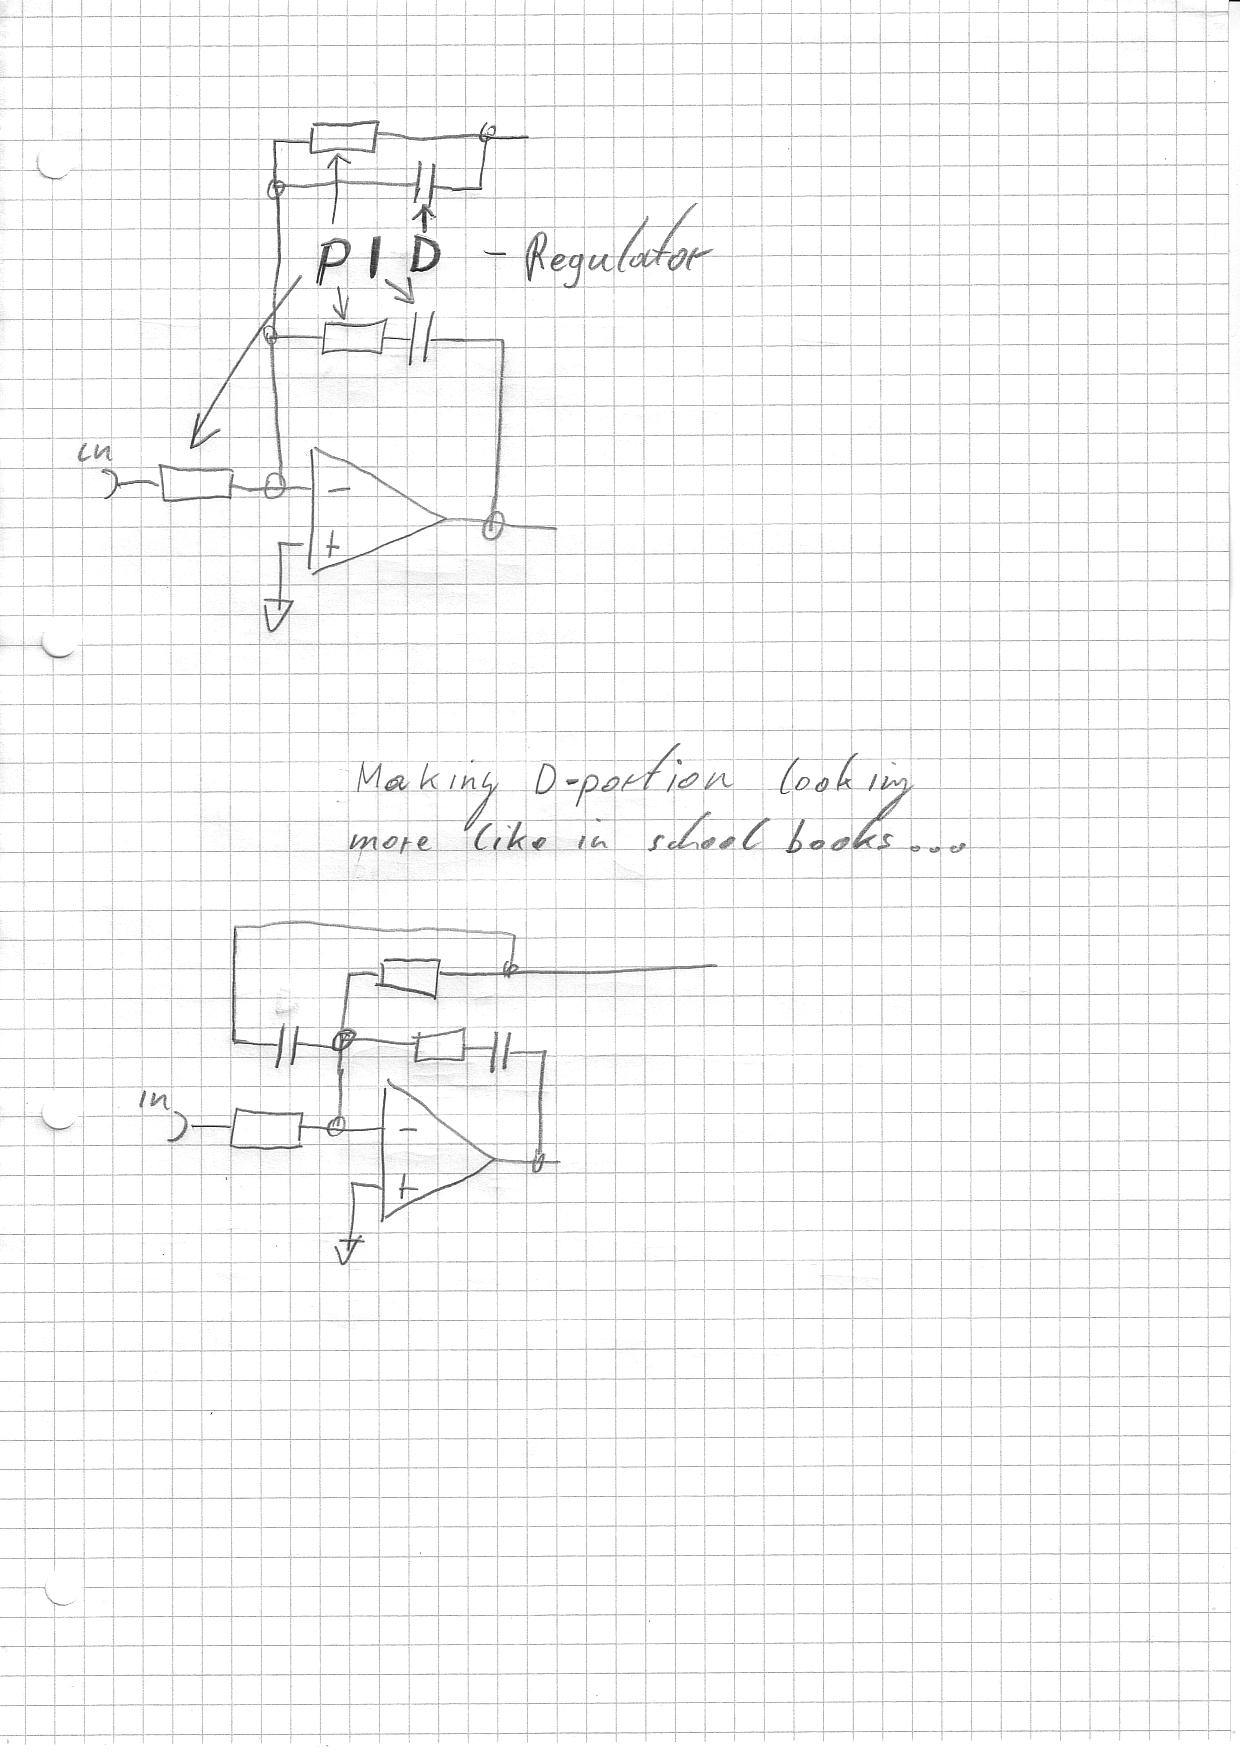 PID - Regulator
in
-
+
Making D-portion looking
more like in school books...
in
-
+